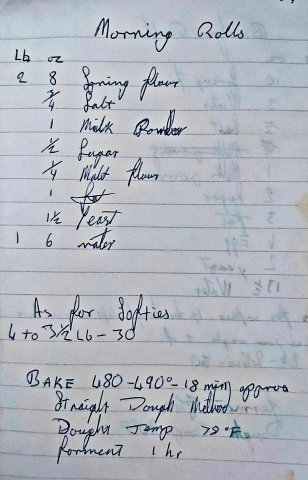 Morning Rolls
Lb oz
2 8 Strong flour
3/4 Salt
1 Milk Powder
1/2 Sugar
1/4 Malt flour
1 fat
1 1/2 Yeast
1 6 water
As for Softies
4 to 3 1/2 Lb - 30
BAKE 480-490° - 18 min approx
Straight Dough Method
Dought Temp 78°F
Forment 1 hr